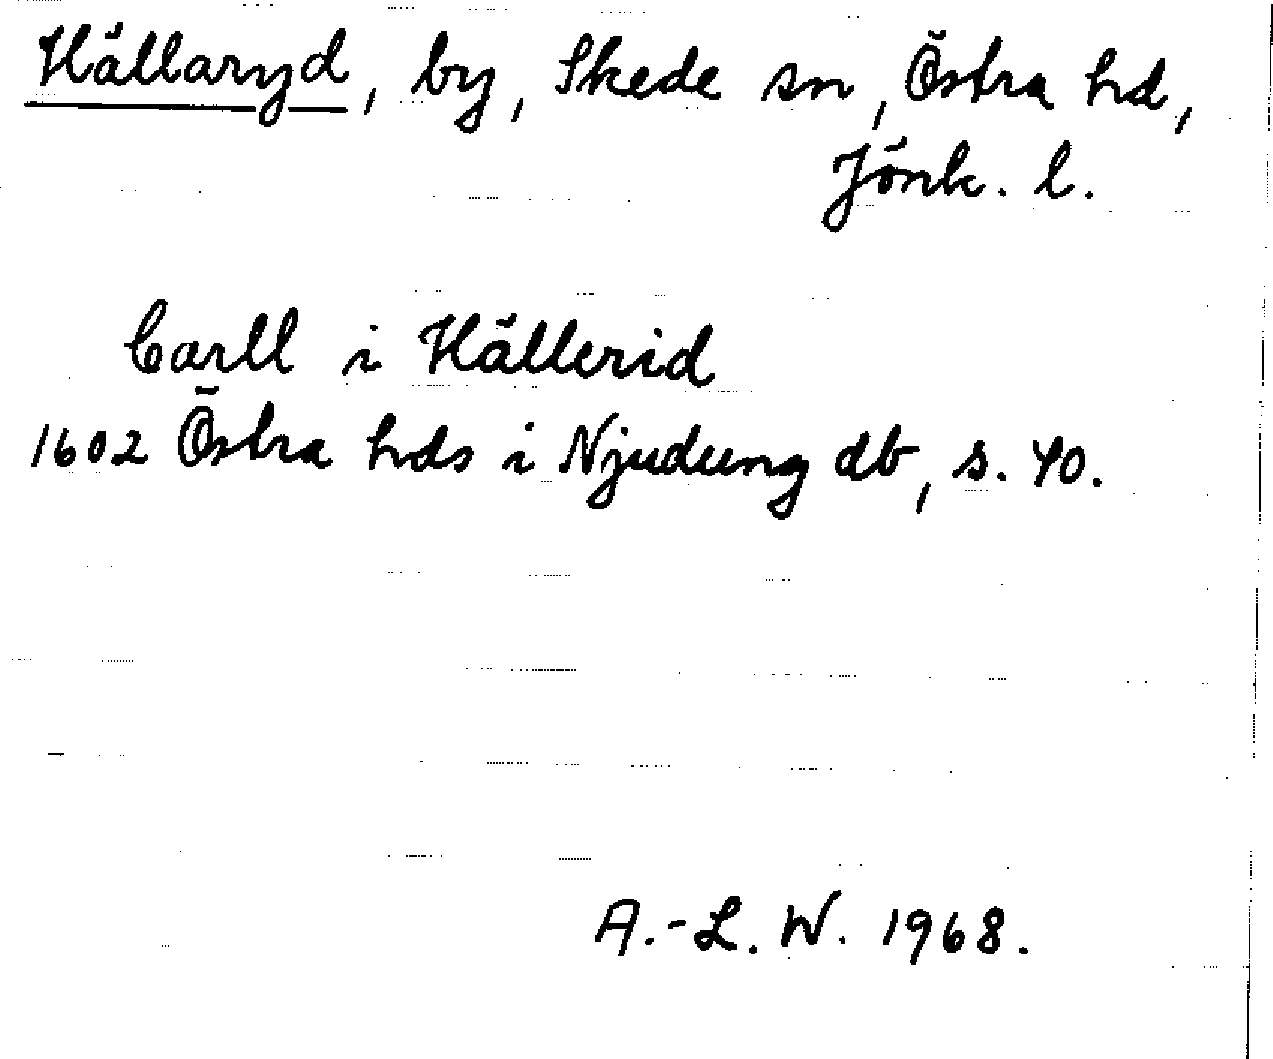 Hällaryd, by, Skede sn, Östra hd,
Jönk. l.
Carll i Hällerid
1602 Östra hds i Njudung db, s. 40.
A.-L. W. 1968.